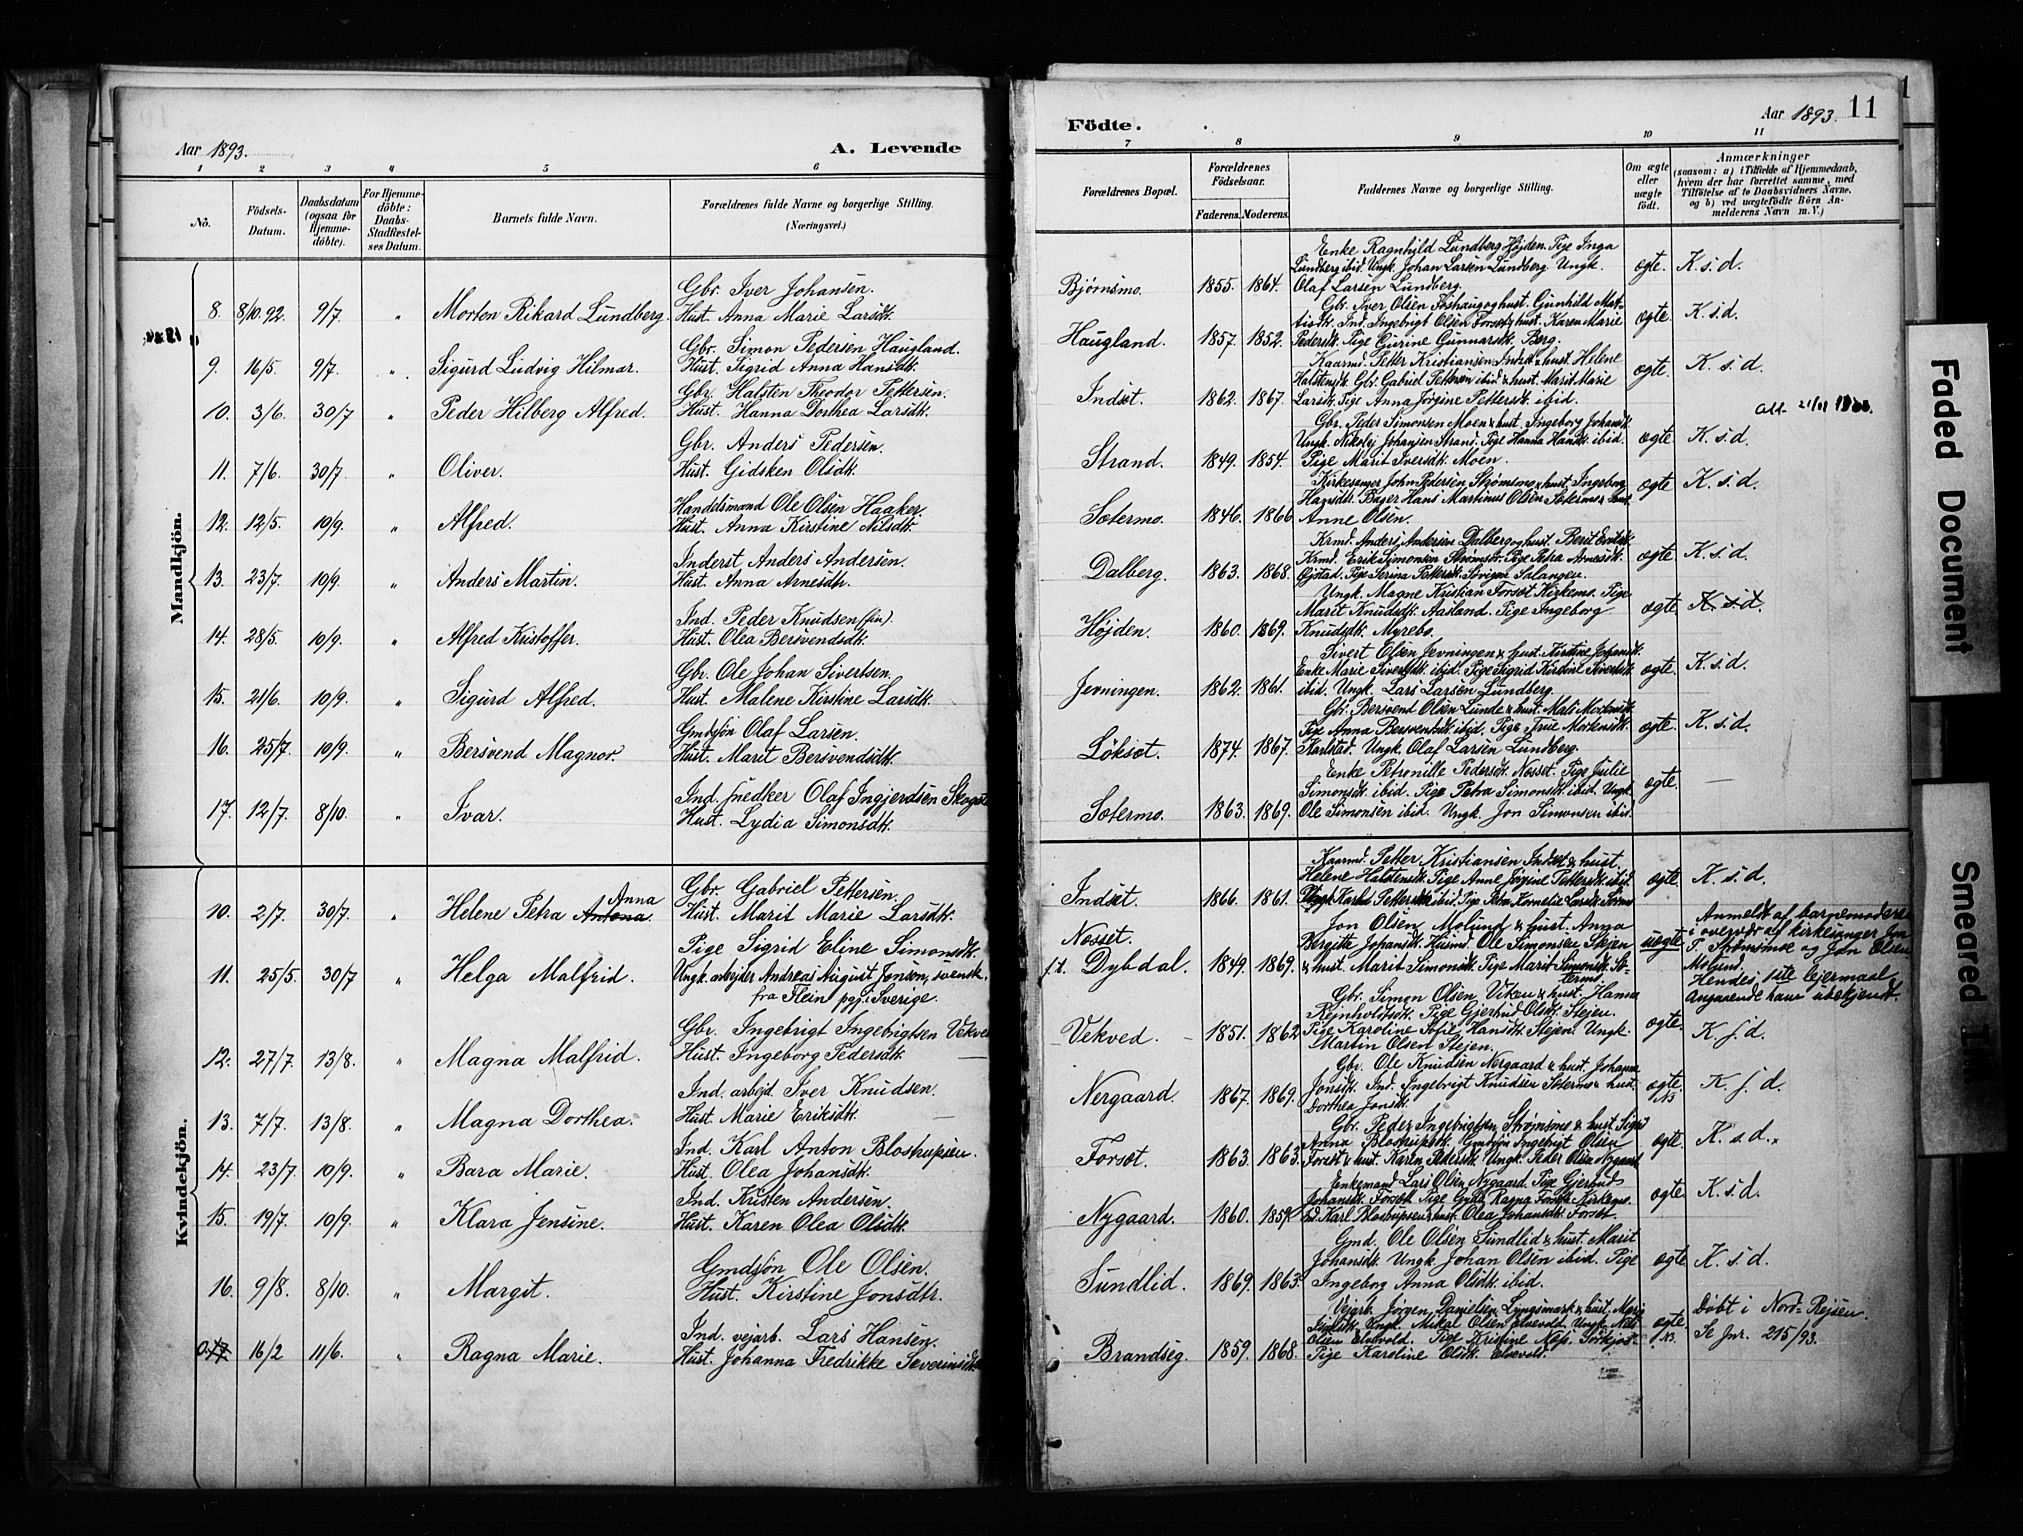 Aar 1893.
A. Levende
1 2 3 4 5 6
No.
Födsels-Datum.
Daabsdatum (ogsaa for Hjemme-döbte).
For Hjemme-döbte: Daabs-Stadfæstel-ses Datum.
Barnets fulde Navn.
Forældrenes fulde Navne og borgerlige Stilling. (Næringsvei.)
Mandkjön.
8. 8/10.92. 9/7. " Morten Rikard Lundberg. Gbr. Iver Johansen.
Hust. Anna Marie Larsdtr.
9. 16/5. 9/7. " Sigurd Ludvig Hilmar. Gbr. Simon Pedersen Haugland.
Hust. Sigrid Anna Hansdtr.
10. 3/6. 30/7 " Peder Hilberg Alfred. Gbr. Halsten Theodor Pettersen.
Hust. Hanna Dorthea Larsdtr.
11. 7/6. 30/7. " Oliver. Gbr. Anders Pedersen.
Hust. Gidsken Olsdtr.
12. 12/5. 10/9. " Alfred. Handelsmand Ole Olsen Haaker.
Hust. Anna Kirstine Nilsdtr.
13. 23/7. 10/9. " Anders Martin. Inderst Anders Andersen.
Hust. Anna Arnesdtr.
14. 28/5. 10/9. " Alfred Kristoffer. Ind. Peder Knudsen (fin).
Hust. Olea Bersvendsdtr.
15. 21/6. 10/9. " Sigurd Alfred. Gbr. Ole Johan Sivertsen.
Hust. Malene Kirstine Larsdtr.
16. 25/7. 10/9. " Bersvend Magnor. Gmdsön Olaf Larsen.
Hust. Marit Bersvendsdtr.
17. 12/7. 8/10. " Ivar. Ind. snedker Olaf Ingjerdsen
Hust. Lydia Simonsdtr.
Kvindekjön.
10. 2/7. 30/7. " Helene Petra Antona Anna Gbr. Gabriel Pettersen.
Hust. Marit Marie Larsdtr.
11. 25/5. 30/7 " Helga Malfrid. Pige Sigrid Eline Simonsdtr.
Ungk. arbejder Andreas August Jonson, svensk.
fra Flein pgj. i Sverige.
12. 27/7. 13/8. " Magna Malfrid. Gbr. Ingebrigt Ingebrigtsen Vekved
Hust. Ingeborg Pedersdtr.
13. 7/7. 13/8. " Magna Dorthea. Ind. arbejd. Iver Knudsen.
Hust. Marie Eriksdtr.
14. 23/7. 10/9. " Bara Marie. Ind. Karl Anton Blostrupsen.
Hust. Olea Johansdtr.
15. 19/7. 10/9. " Klara Jensine. Ind. Kristen Andersen.
Hust. Karen Olea Olsdtr.
16. 9/8. 8/10. " Margit. Gmdsjön Ole Olsen.
Hust. Kirstine Jonsdtr.
16/2 11/6. " Ragna Marie. Ind. vejarb. Lars Hansen.
Hust. Johanna Fredrikke Severinsdtr.
Födte.
Aar 1893. 11
7 8 9 10 11
Forældrenes Bopæl.
Forældrenes Födselsaar.
Faderens. Moderens.
Faddernes Navne og borgerlige Stilling.
Om ægte eller uægte födt.
Anmærkninger
(saasom: a) i Tilfælde af Hjemmedaab, hvem der har forrettet samme, med Tilföielse af to Daabsvidners Navne. og b) ved uægtefödte Börn An-melderens Navn m. V.)
Enke Ragnhild Lundberg Højden. Pige Inga
Lundberg ibid. Ungk. Johan Larsen Lundberg. Ungk.
Bjørnsmo. 1855. 1864. Olaf Larsen Lundberg. ægte. K. s. d.
Gbr. Iver Olsen Foshaug og hust. Gunhild Mat-
tisdtr. Ind. Ingebrigt Olsen Forsæt & hust. Karen Marie
Haugland. 1857. 1852. Pedersdtr. Pige Gurine Gunnarsdtr. Berg. ægte K. s. d.
Kaarmd. Petter Kristiansen Indset & hust. Helene
Halstensdtr. Gbr. Gabriel Pettersen ibid & hust. Marit Marie
Indset. 1862. 1867. Larsdtr. Pige Anna Jørgine Pettersdtr. ibid. ægte. K. s. d.
Gbr. Peder Simonsen Moen & hust. Ingeborg Johansdtr.
Ungk. Nikolaj Johansen Strand. Pige Hanna Hansdtr. ibid.
Strand. 1849. 1854. Pige Marit Iversdtr. Moen. ægte K. s. d.
Kirkesanger John Pedersen Strømsmo & hust. Ingeborg
Hansdtr. Bager Hans Martinus Olsen Sætermo & hust.
Sætermo. 1846. 1866. Anne Olsen. ægte K. s. d.
Krmd. Anders Andersen Dalberg og hust. Berit Eriksdtr.
Krmd. Erik Simonsen Strømstr. Pige Petra Arnesdtr.
Dalberg. 1863. 1868. Pige Serina Pettersdtr. Salangen. ægte K. s. d.
Ungk. Magne Kristian Forsæt Kirkemo. Pige
Marit Knudsdtr. Aasland. Pige Ingeborg
Højden. 1860. 1869. Knudsdtr. Myrebo. ægte. K. s. d.
Sivert Olsen Jevningen & hust. Kirstine Johansdtr.
Enke Marie Sivertsdtr. ibid. Pige Sigrid Kirstine Sivertsdtr.
Jevningen. 1862. 1861. ibid. Ungk. Lars Larsen Lundberg. ægte K. s. d.
Gbr. Bersvend Olsen Lunde & hust. Mali Mortensdtr.
Pige Anna Bersvendsdtr. ibid. Pige Mortensdtr.
Løkset. 1874. 1867. Karlstad. Ungk. Olaf Larsen Lundberg. ægte. K. s. d.
Enke Petronille Pedersdtr. Næsset. Pige Julie
Simonsdtr. ibid. Pige Petra Simonsdtr. ibid. Ungk.
Sætermo. 1863. 1869. Ole Simonsen ibid. Ungk. Jon Simonsen ibid. ægte.
Kaarmd. Petter Kristiansen Indset & hust.
Helene Halstensdtr. Pige Anne Jørgine Pettersdtr. ibid.
Indset. 1866. 1861. ægte. K. s. d.
Jon Olsen Molund & hust. Anna
Næsset. Bergitte Johansdtr. Husmd. Ole Simonsen Stejen
f.t. Dybdal. 1849. 1869. & hust. Marit Simonsdtr. Pige Marit Simonsdtr. Sæ-
termo. uægte
Anmeldt af barnemoderen
i overvær af kirkesanger
P. Strømsmoe og Jon Olsen
Molund.
Hendes 1ste lejermaal
Angaaende ham ubekjendt.
Gbr. Simon Olsen Viken & hust. Hanna
Rejnholdtsdtr. Pige Gjertrud Olsdtr. Stejen.
Vekved. 1851. 1862 Pige Karoline Sofie Hansdtr. Stejen. Ungk.
Martin Olsen Stejen. ægte. K. s. d.
Gbr. Ole Knudsen Nergaard & hust. Johanna
Jonsdtr. Ind. Ingebrigt Knudsen Sætermo & hust.
Nergaard. 1867. 1869. Dorthea Jonsdtr. ægte. K. s. d.
Gbr. Peder Ingebrigtsen Strømsmo & hust. Sigrid
Anna Blostrupsdtr. Gmdsøn Ingebrigt Olsen
Forset. 1863. 1863. Forset & hust. Karen Pedersdtr. Ungk. Peder Olsen Nygaard ægte. K. s. d.
Enkemand Lars Olsen Nygaard. Pige Gjertrud
Johansdtr. Forset. Pige Ragna Forset Kirkemo.
Nygaard. 1860. 1859. Ind. Karl Blostrupsen & hust. Olea Johansdtr. Forset ægte K. s. d.
Gmd. Ole Olsen Sundlid & hust. Marit
Johansdtr. Ungk. Johan Olsen ibid. Pige
Sundlid. 1869. 1863. Ingeborg Anna Olsdtr. ibid. ægte K. s. d.
Vejarb. Jørgen Danielsen Lyngsmark & hust.
Ungk. Mikal Olsen Elvevold. Ungk. Nils
Olsen Elvevold. Pige Kristine Sørkjos.
Brandseg. 1859. 1868. Pige Karoline Olsdtr. Elvevold. ægte Døbt i Nord-Rejsen.
Se Jnr. 215/93.
Faded Document
Smeared Ink